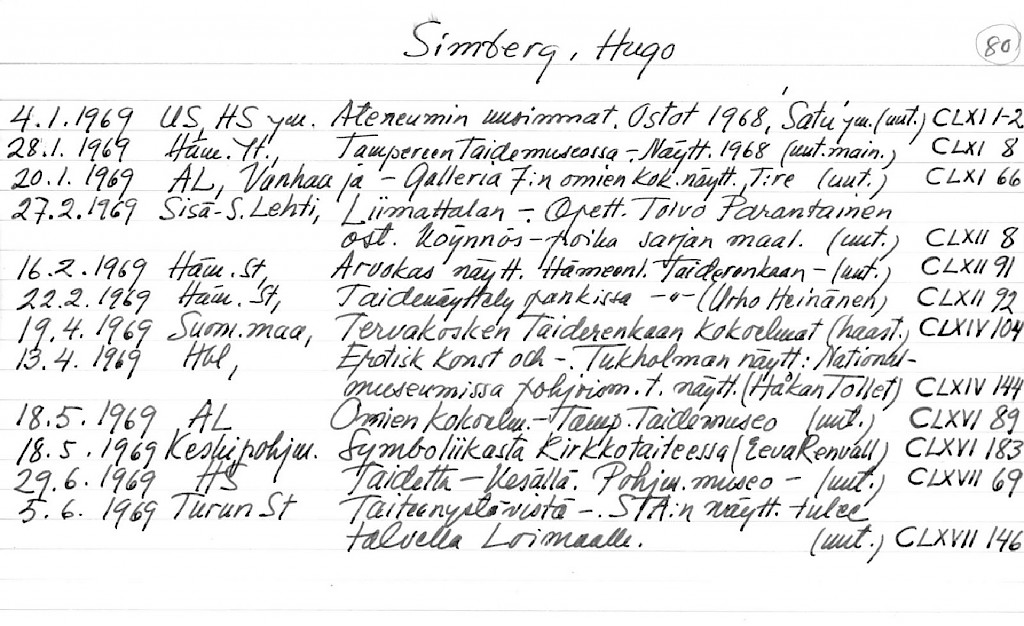 Simberg, Hugo 80
4.1.1969 US, HS ym. Ateneumin uusimmat. Ostot 1968, 'Satu' ym. (uut.) CLXI 1-2
28.1.1969 Häm. Yt., Tampereen Taidemuseossa - Näytt. 1968 (uut. main.) CLXI 8
20.1.1969 AL, Vanhaa ja - Galleria 7:n omien kok. näytt., Tire (uut.) CLXI 66
27.2.1969 Sisä-S. Lehti, Liimattalan -. Opett. Toivo Parantainen
ost. Köynnös-poika sarjan maal. (uut.) CLXII 8
16.2.1969 Häm. St, Arvokas näytt. Hämeenl. Taiderenkaan - (uut.) CLXII 91
22.2.1969 Häm. St, Taidenäyttely pankissa -"- (Urho Heinänen) CLXII 92
19.4.1969 Suom.maa, Tervakosken Taiderenkaan kokoelmat (haast.) CLXIV 104
13.4.1969 Hbl, Erotisk Konst och -. Tukholman näytt: National-
museumissa pohjoism. t. näytt. (Håkan Tollet) CLXIV 144
18.5.1969 AL Omien kokoelm. - Tamp. Taidemuseo (uut.) CLXVI 89
18.5.1969 Keskipohjm. Symboliikasta Kirkkotaiteessa (Eeva Renvall) CLXVI 183
29.6.1969 HS Taidetta - Kesällä. Pohjm. museo - (uut.) CLXVII 69
5.6.1969 Turun St Taitennystävistä -. STA:n näytt. tulee
talvella Loimaalle. (uut.) CLXVII 146